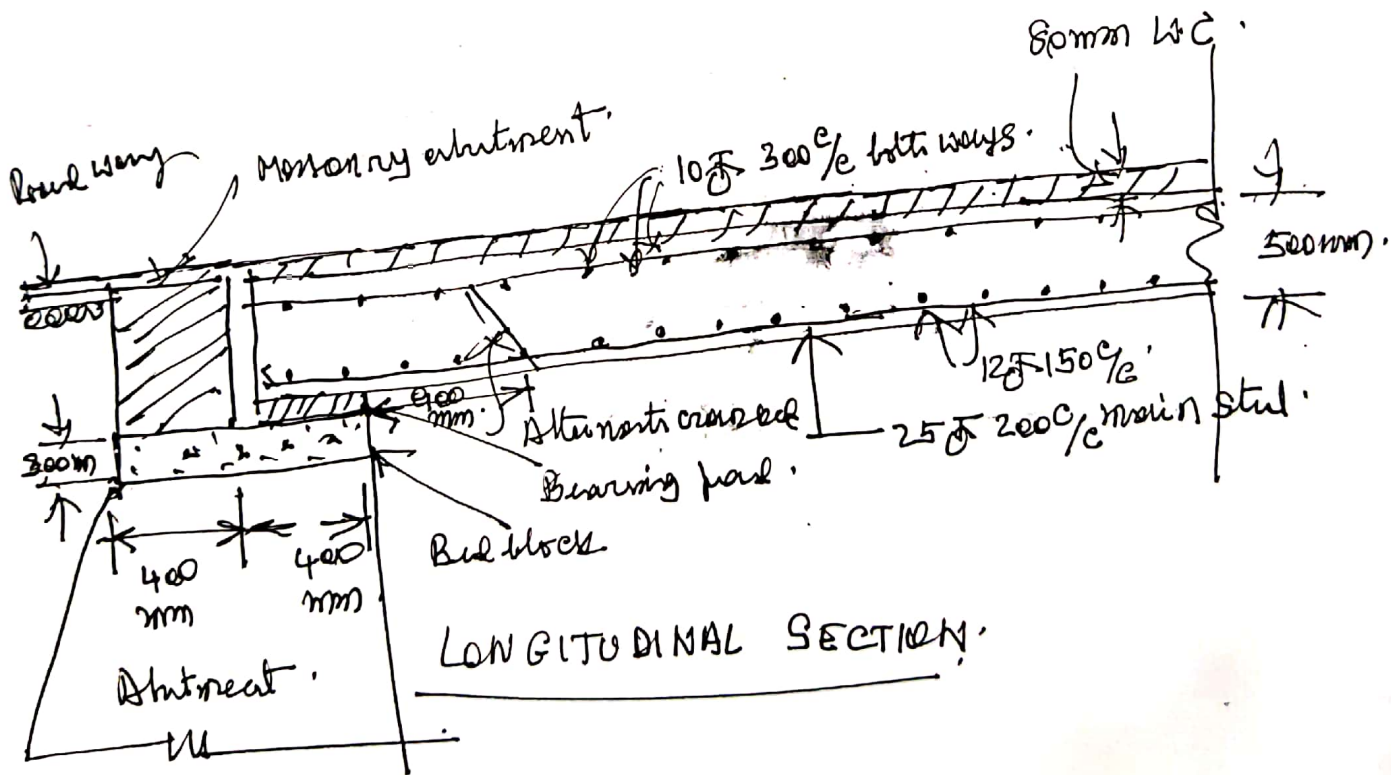 80mm W.C.
Road way
Masonary abutment.
10⌀ 300 c/c both ways.
500mm.
12⌀ 150 c/c.
900
mm.
Alternate cranked
25⌀ 200 c/c main steel.
300m
Bearing pad.
Bed block
400
mm
400
mm
LONGITUDINAL SECTION.
Abutment.